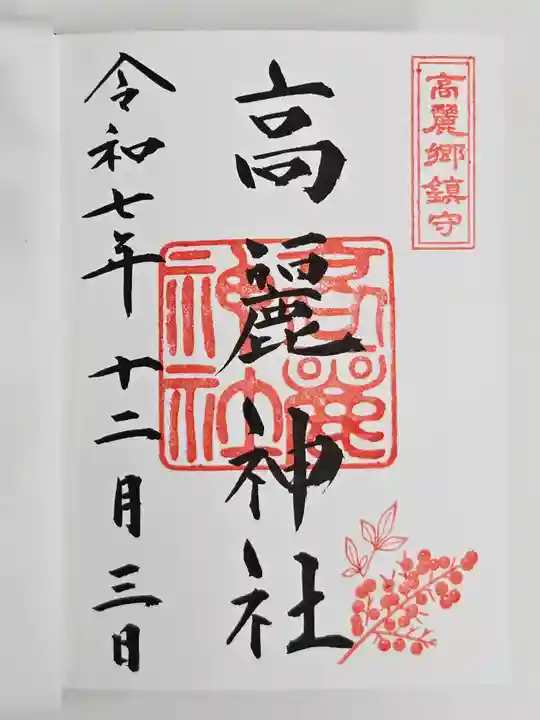 高麗郷鎮守
高麗神社
高麗神社
令和七年十二月三日